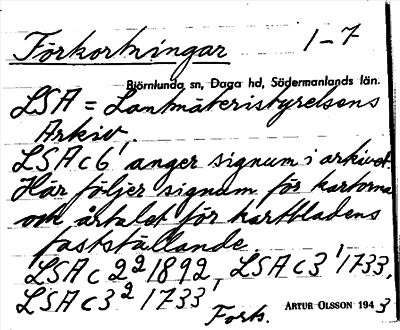 Förkortningar 1-7
Björnlunda sn, Daga hd, Södermanlands län.
LSA = Lantmäteristyrelsens
Arkiv.
LSA c6¹ anger signum i arkivet.
Här följer signum för kartorna
och årtalet för kartbladens
fastställande.
LSA c 2² 1892, LSA c3¹ 1733,
LSA c3² 1733,
Forts. ARTUR OLSSON 1943